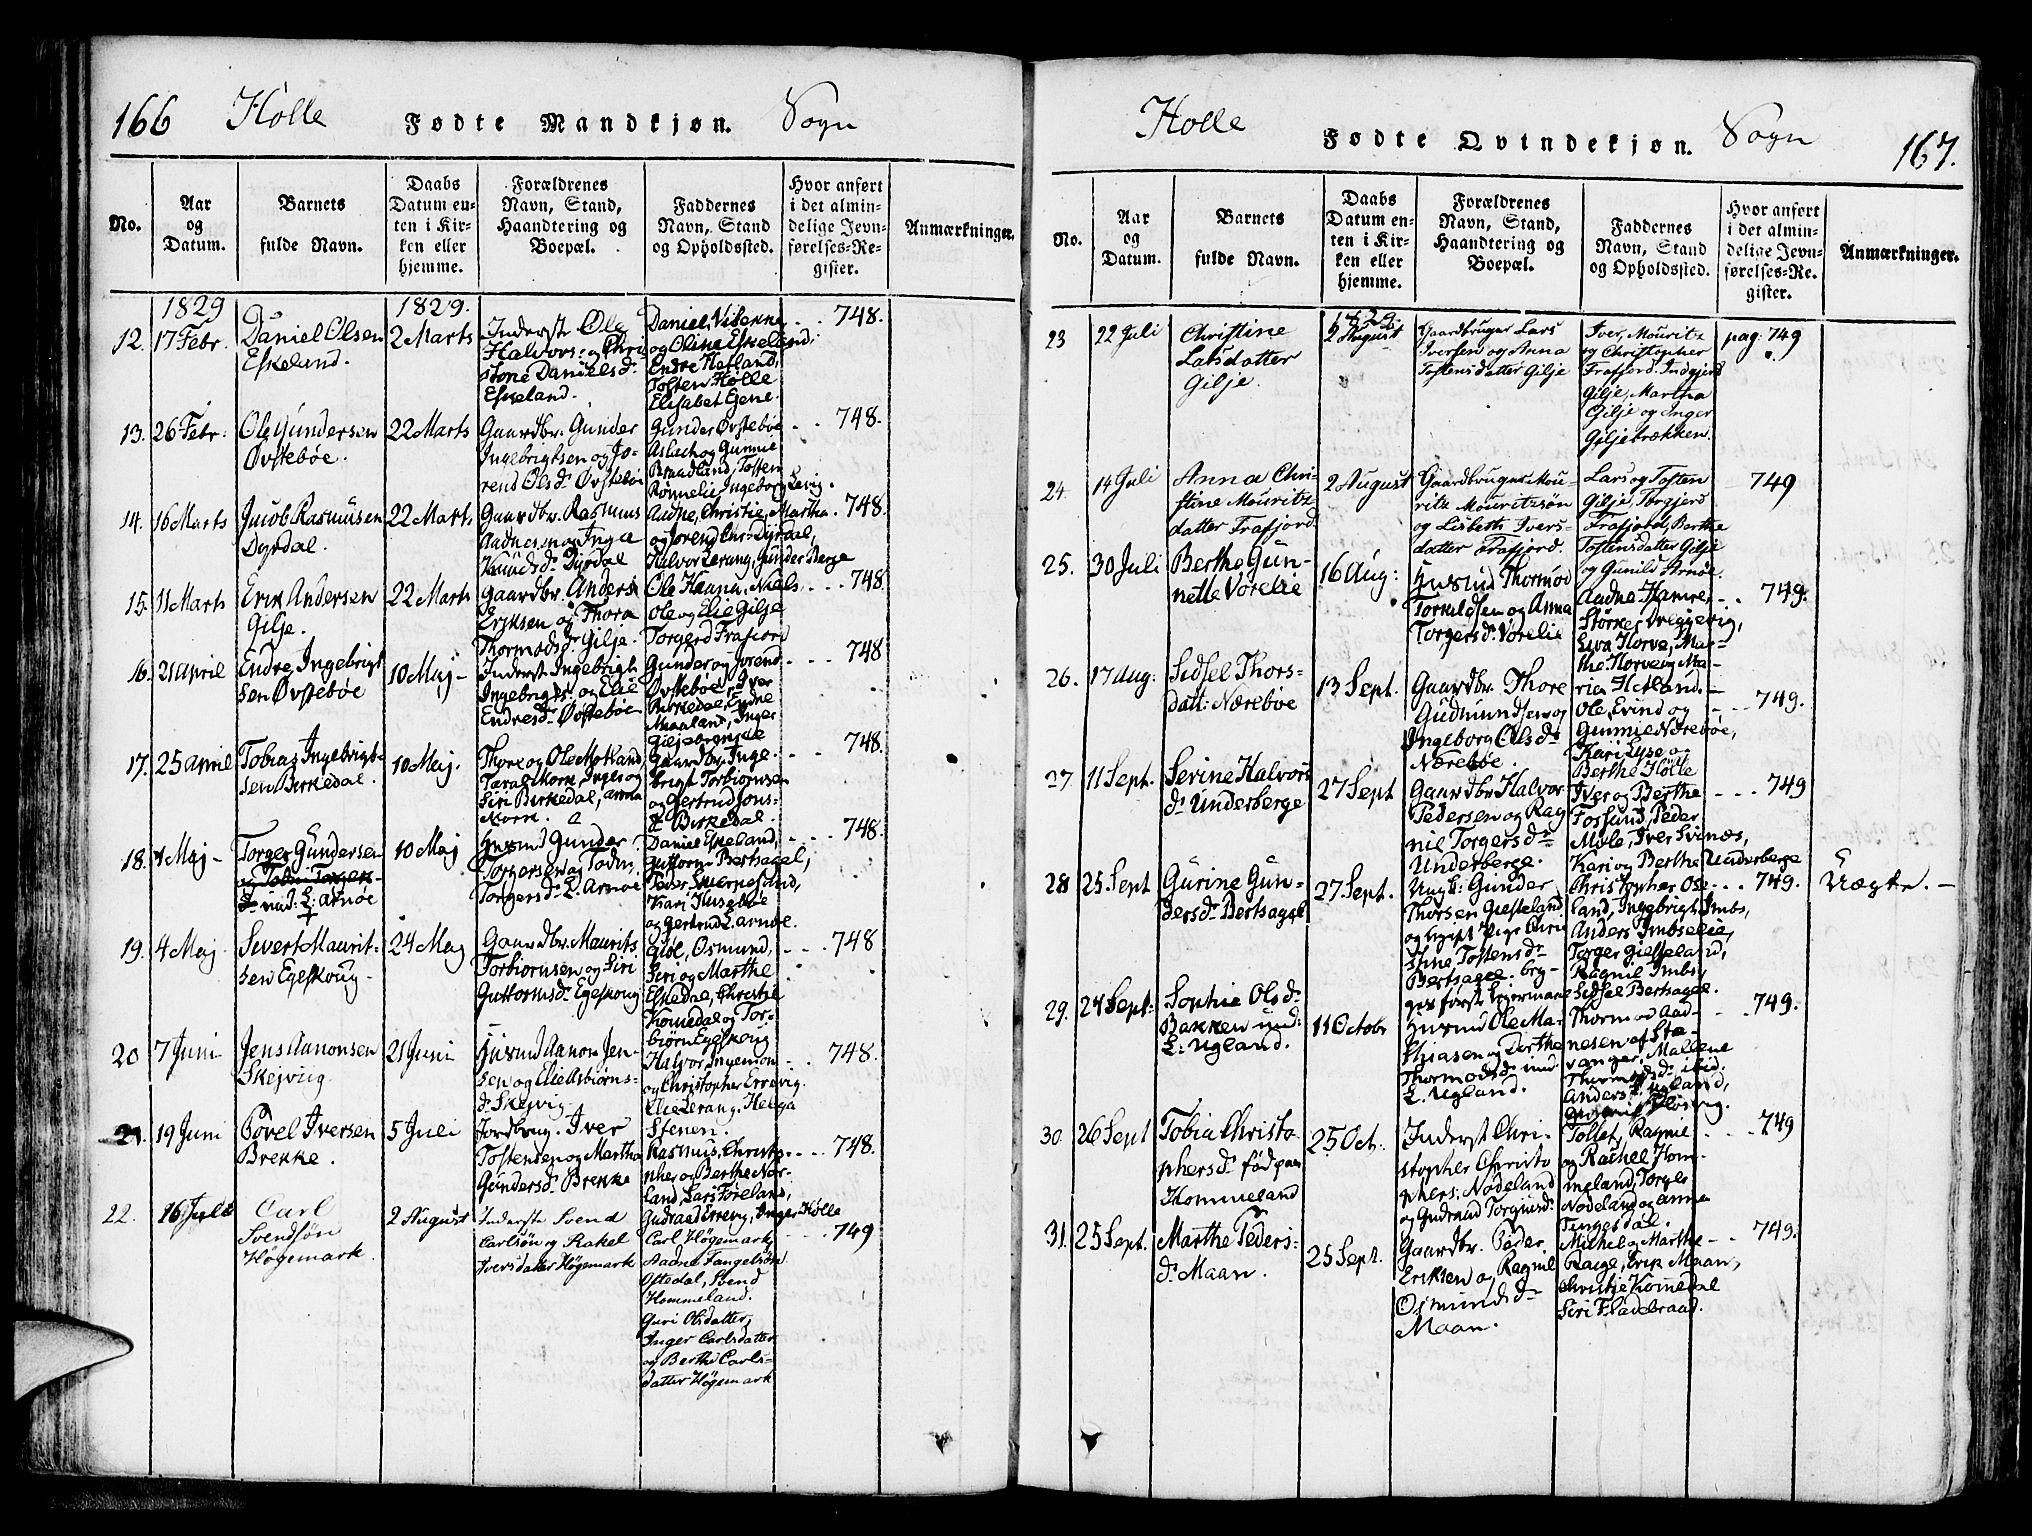 166 Holle Fødte Mandkjøn. Sogn
No.
Aar og Datum.
Barnets fulde Navn.
Daabs Datum enten i Kirken eller hjemme.
Forældrenes Navn, Stand, Haandtering og Boepæl.
Faddernes Navn, Stand og Opholdssted.
Hvor anført i det almindelige Jevnførelses-Register.
Anmærkninger.
1829 1829.
12. 17 Febr.
Daniel Olsen
Eskeland.
2 Marts
Inderst Ole
Halvors: og Chri
stone Danielsdr
Eskeland.
Daniel, Visekne
og Oline Eskeland,
Endre Hetland,
Tosten Holle
Elisabet Ejene.
748.
13. 26 Febr:
Ole Gundersen
Øvstebøe.
22 Marts
Gaardbr. Gunder
Ingebrigtsen og Jo-
rend Olsdr Øvstebøe
Gunder Øvstebøe
Aslach og Gunnie
Braadland, Tosten
Rønnelie Ingeborg Levig.
748.
14. 16 Marts
Jacob Rasmusen
Dyrdal.
22 Marts
Gaardbr. Rasmus
Aadnesen og Inga
Knudsdr Dyrdal
Audne, Christie, Martha
og Jorend Chr: Dyrdal,
Halvor Lerang, Gunder Berge
748.
15. 11 Marts
Erik Andersen
Gilje.
22 Marts
Gaardbr. Anders
Eriksen og Thora
Thormodsdr Gilje.
Ole Haana, Niels,
Ole og Elie Gilje
Torgerd Frafjord
748.
16. 21 April
Endre Ingebrigt
sen Øvstebøe
10 Maj -
Inderst Ingebrigt
Ingebrigts: og Elie
Endresdr Øvstebøe
Gunder og Jorend
Øvstebøe, Iver
Birkedal, Endre
Maaland, Inger
Giljebrække
748
17. 25 April
Tobias Ingebrigt-
sen Birkedal.
10 Maj.
Thore og Ole Motland
Taral Mork, Inger og
Siri Birkedal, Anna
Mork. a
Gaardbr. Inge-
brigt Torbiørnsen
og Gertrud Jons-
dr Birkedal.
748.
18. 1 Maj -
Torger Gundersen
und: L: Arnøe
10 Maj
Husmd Gunder
Torgersen og Todni
Torgersdr L. Arnøe
Daniel Eskeland,
Guttorm Bertsagel,
Peder Skiernesand,
Kari Husebøe
og Gertrud L: Arnøe.
748.
19. 4 Maj
Sivert Maurit-
sen Egeskoug -
24 Maj
Gaardbr. Maurits
Torbiørnsen og Siri
Guttormsdr Egeskoug
Giøe, Osmund,
Siri og Marthe
Eskedal, Christie
Komedal og Tor-
biørn Egeskoug
748
20 7 Juni
Jens Aanonsen
Skejvig.
21 Juni
Husmd Aanon Jen-
sen og Elie Asbiørns-
dr Skejvig
Halvor Ingemon
og Christopher Errevig.
Elie Lerang, Helga
Stenen.
748.
21. 19 Juni
Povel Iversen
Brekke.
5 Juli
Jordbrug. Iver
Tostensen og Martha
Gundersdr Brekke
Rasmus, Christo-
pher og Berthe Nor-
land, Lars Føreland,
Gudraad Errevig, Inger Hølle
748.
22. 16 Juli
Carl
Svendsøn
Høgemark.
2 August
Inderste Svend
Carlsøn og Rakel
Iversdatter Høgemark
Carl Høgemark,
Aadne Tangelsøn
Oftedal, Svend
Hommeland.
Guri Olsdatter,
Inger Carlsdatter
og Berthe Carls-
datter Høgemark
749
Holle Fødte Qvindekjøn. Sogn 167.
No.
Aar og Datum.
Barnets fulde Navn.
Daabs Datum enten i Kirken eller hjemme.
Forældrenes Navn, Stand, Haandtering og Boepæl.
Faddernes Navn, Stand og Opholdssted.
Hvor anført i det almindelige Jevnførelses-Register.
Anmærkninger.
1829.
23 22 Juli
Christine
Larsdatter
Gilje.
2 August
Gaardbruger Lars
Iversen og Anna
Tostensdatter Gilje
Iver, Mouritz
og Christopher
Frafjord. Indgjerd
Gilje, Martha
Gilje og Inger
Giljebrækken.
pag: 749
24. 14 Juli
Anna Chri-
stine Mouritz-
datter Frafjord
2 August
Gaardbruger Mou-
ritz Mouritzsøn
og Lisbeth Ivers-
datter Frafjord.
Lars og Tosten
Gilje, Torgjerd
Frafjord, Berthe
Tostensdatter Gilje
og Gunild Arnøe.
749
25. 30 Juli
Berthe Gun-
nette Vorelie
16 Aug:
Husmd Thormod
Torkildsen og Anna
Torgersdr Vorelie
Aadne Hamre,
Størker Dreggevig,
Siva Horve, Mar-
the Horve og Ma-
ria Hetland.
749.
26. 17 Aug:
Sidsel Thors-
datt: Nærebøe
13 Sept.
Gaardbr. Thore
Gudmundsen og
Ingeborg Olsdr
Nærebøe.
Ole, Evind og
Gunnie Nærebøe,
Kari Lyse og
Berthe Hølle
749.
27 11 Sept.
Serine Halvors
dr Underberge
27 Sept
Gaardbr Halvor
Pedersen og Rag
nie Torgersdr
Underberge.
Iver og Berthe
Fossand, Peder
Møle, Iver Svinæs,
Kari og Berthe Underberge
749
28 25 Sept
Gurine Gun-
dersdr Bertsagel
27 Sept.
Ungk: Gunder
Thorsen Giesteland
og Ligift Pige Chri
stine Tostensdr
Bertsagel. beg-
ges første Lejermaal
Christopher Ose-
land, Ingebrigt Imbs,
Anders Imbselie,
Torger Giesteland,
Ragnil Imbs,
Sidsel Bertsagel.
749. Uægte. -
29. 24 Sept:
Sophie Olsdr
Bakken und:
L: Ugland.
11 Octobr
Husmd Ole Ma-
thiasen og Dorthe
Thormodsdr und
L. Ugland.
Thormod Aad-
nesen af Sta-
vanger, Mallene
Thormodsdr ibid.
Anders Ugland,
749.
30. 26 Sept
Tobia Christo-
phersdr föd paa
Hommeland
25 Oct.
Inderst Chri-
stopher Christo
phers: Nodeland
og Gudraud Torgiusdr
Tollef, Ragnie
og Rachel Hom-
meland, Torgils
Nodeland og Anne
Tingesdal.
749
31. 25 Sept.
Marthe Peders-
dr Maan.
25 Sept.
Gaardbr. Peder
Eriksen og Ragnil
Osmundsdr
Maan.
Michel og Marthe
Rage, Erik Maan,
Christie Komedal
Siri Fladebraad.
749.